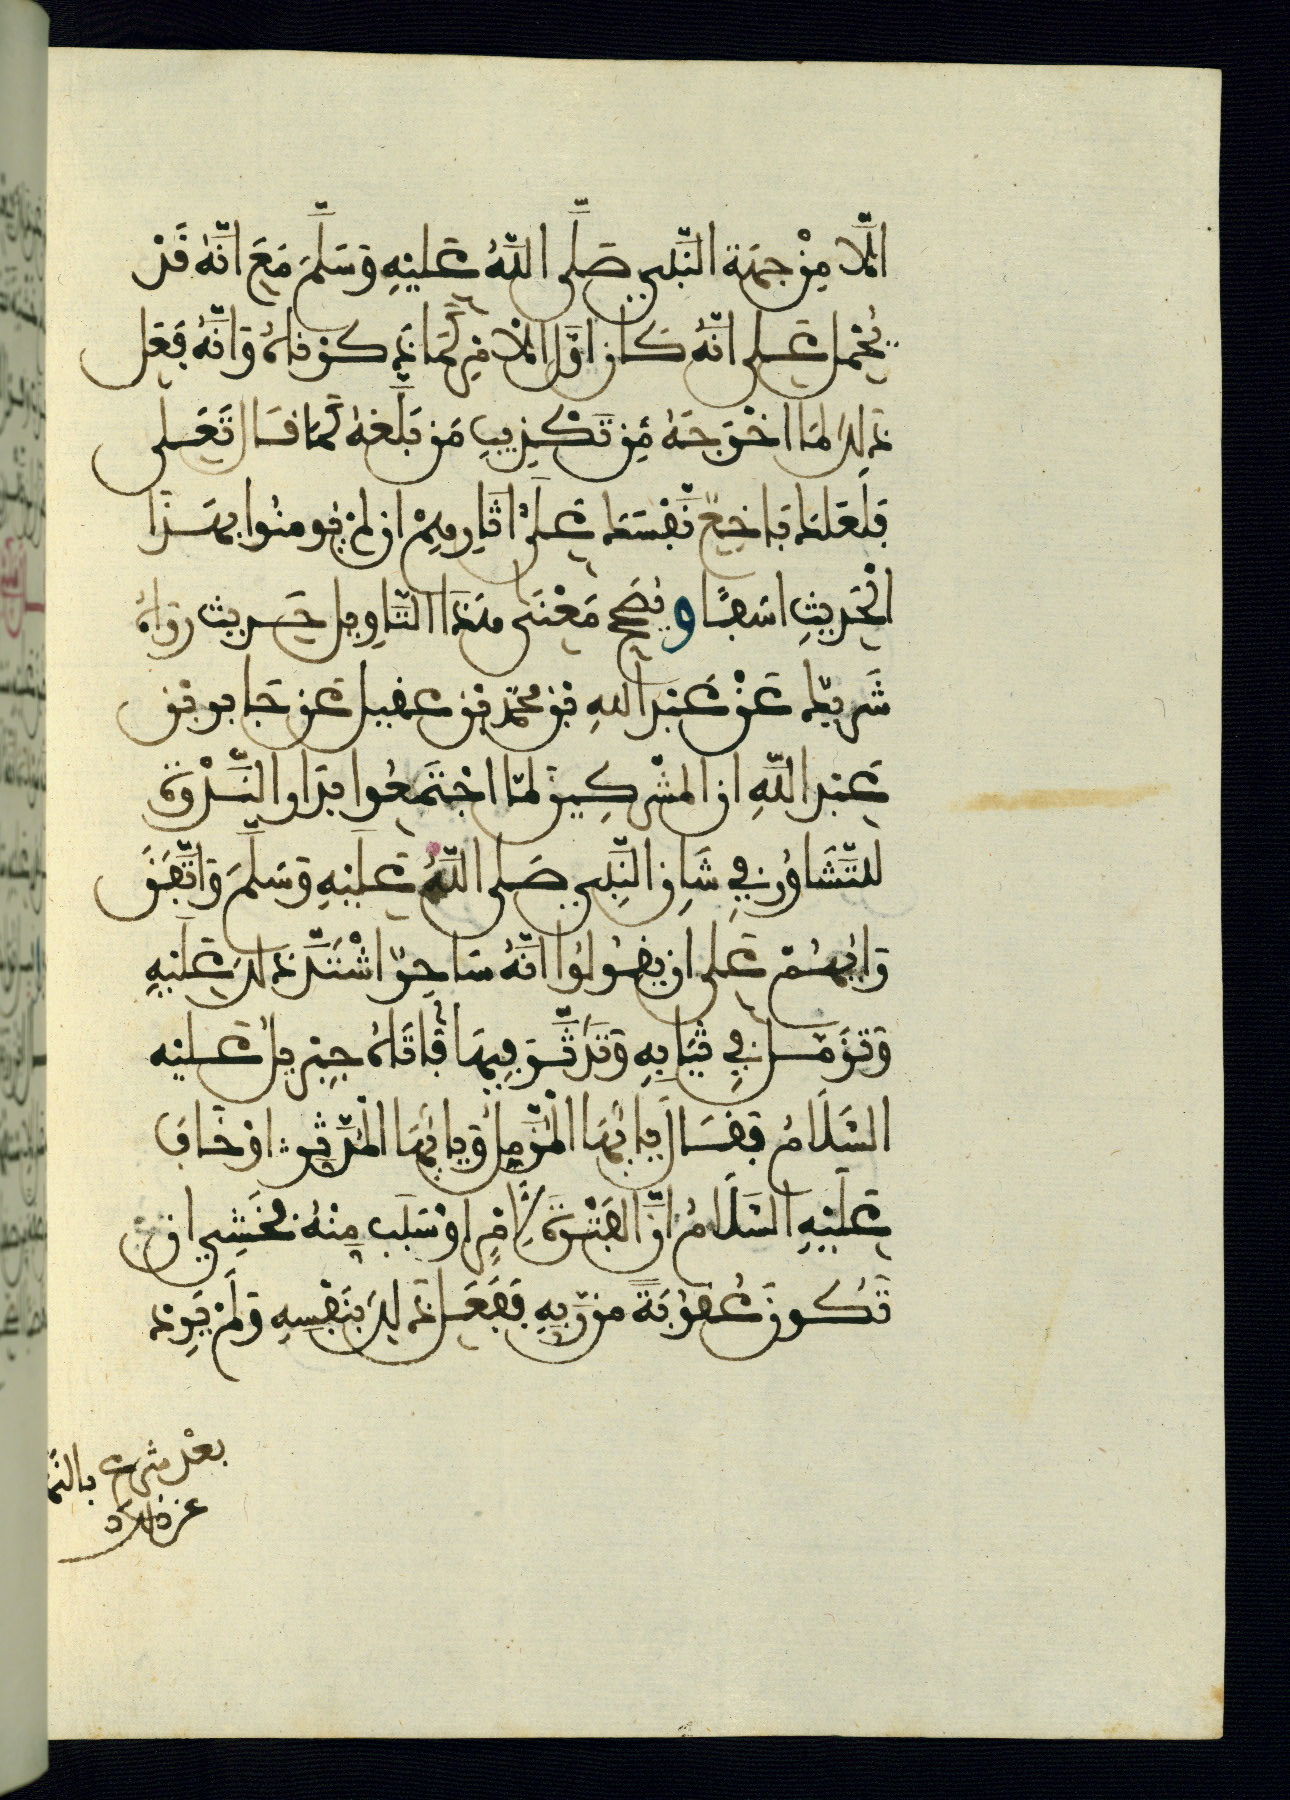 الَّا مِنْ جِهَة النَّبِي صَلَّى اللَّهُ عَلَيْهِ وَسَلَّمَ مَعَ انَّهُ قَدْ
يُحْمل عَلى انَّهُ كَان اوَّل الامْرِ كَمَا ذَكرناهُ وَانَّهُ فَعَل
ذَلِكَ لمَا احْرَجَهُ مِن تَكْذِيبِ مَن بَلَّغهُ كَمَا قَال تَعَلى
فَلَعَلكَ بَاخِعٌ نَّفْسَكَ عَلَى اثَارِهِمْ ان لمْ يُومنُوا بِهَذَا
الْحَدِيثِ اسَفًا وَيُصَحِّح مَعْنَى هَذَا التَّاوِيل حَديث رَوَاهُ
شَرِيك عَنْ عَبْد اللهِ بْن مُحَمَّد بْن عَقِيل عَن جَابر بْن
عَبْد اللَّهِ ان المشْركِينَ لمَّا اجْتَمَعُوا بدَار النَّدْوَة
للتَّشَاوُر فِي شَانِ النَّبِي صَلى اللَّهُ عَلَيْهِ وَسَلَّمَ وَاتَّفَقَ
رَايُهُمْ عَلى ان يقُولُوا انَّهُ سَاحِرٌ اشْتَدَّ ذَلكَ عَلَيْهِ
وَتَزَمَّل فِي ثِيَابِهِ وَتَدَثَّرَ فِيهَا فَاتَاهُ جِبْرِيلُ عَلَيْه
السَّلَامُ فَقَال يَايُّهَا الْمُزَّمِلُ وَيايُّهَا الْمُدَّثِّر اوْ خَافَ
عَلَيْهِ السَّلَامُ انَّ الفَتْرَةَ لِامْرٍ اوْ سَبَب مِنْهُ فَخَشِي ان
تَكُونَ عُقُوبَةً من رَّبِهِ فَفَعَل ذَلِكَ بِنَفْسِهِ وَلَمْ يَرِد
بعْد شرع بالنه
عن ذلك